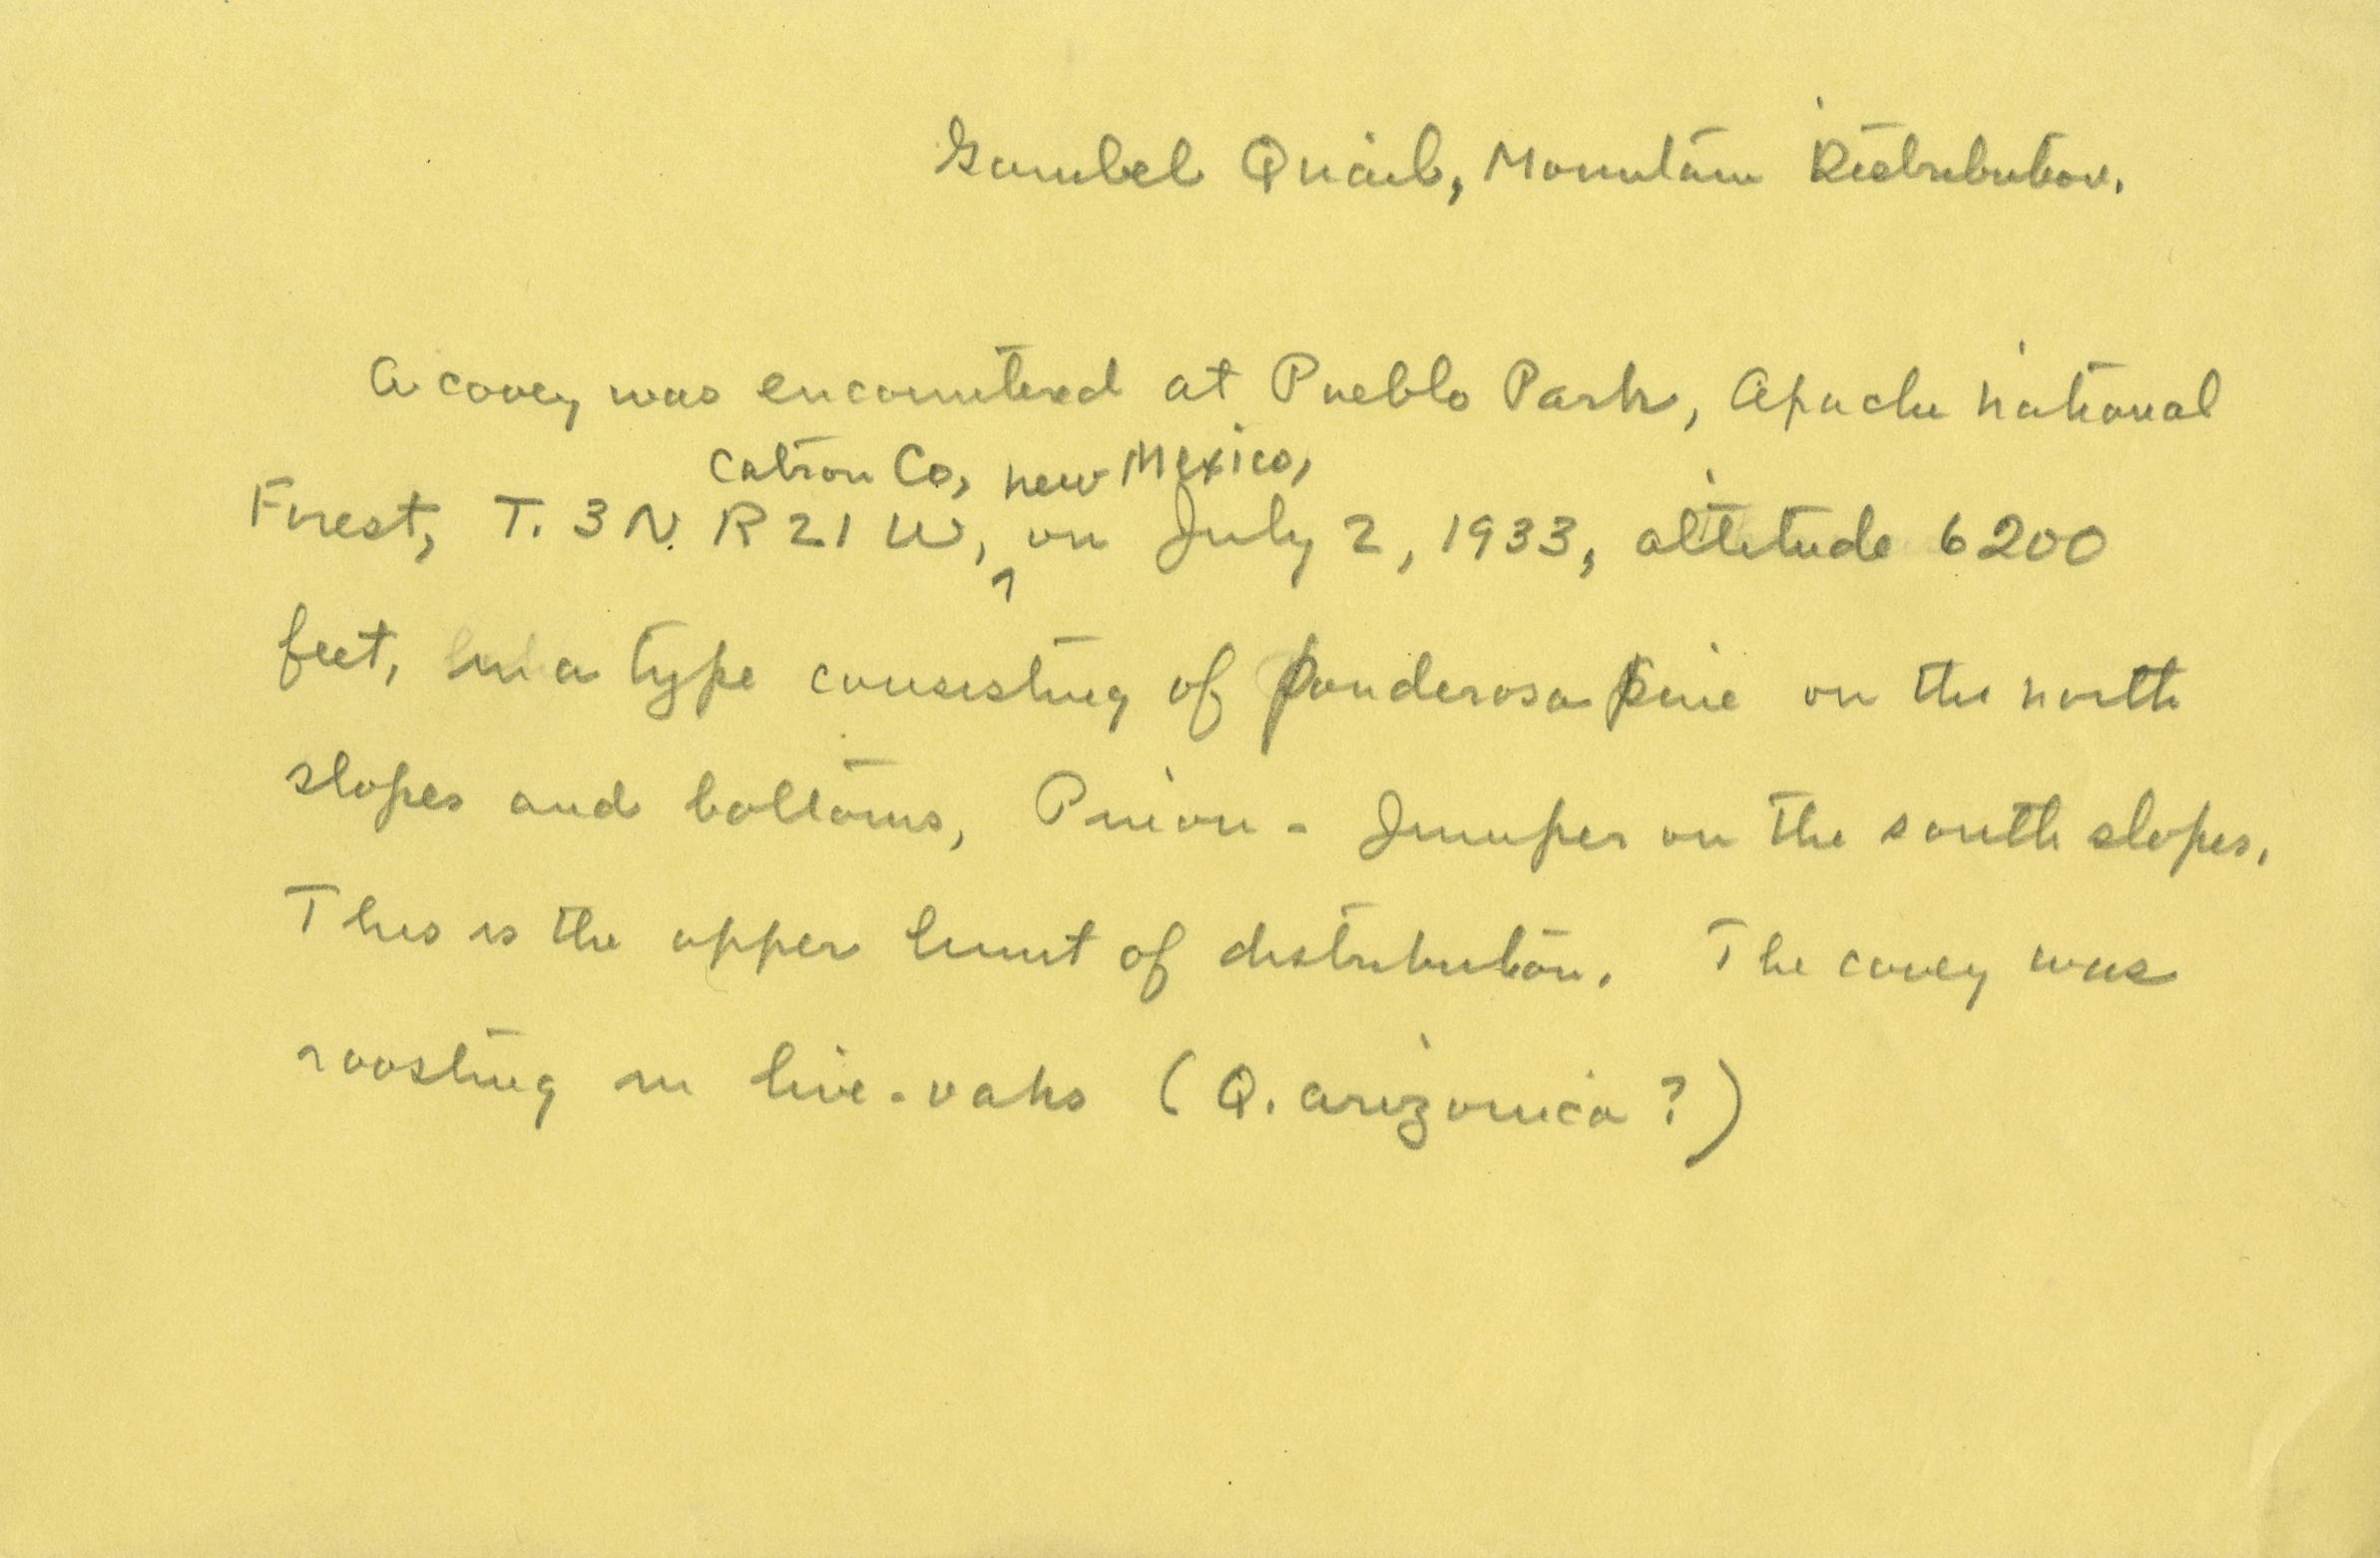 Gambel Quail, Mountain Distribution.
A covey was encountered at Pueblo Park, Apache National
Catron Co, New Mexico,
Forest, T. 3 N. R 21 W, ^ on July 2, 1933, altitude 6200
feet, in a type consisting of ponderosa pine on the north
slopes and bottoms, Pinion - Juniper on the south slopes.
This is the upper limit of distribution. The covey was
roosting in live-oaks (Q. arizonica ?)